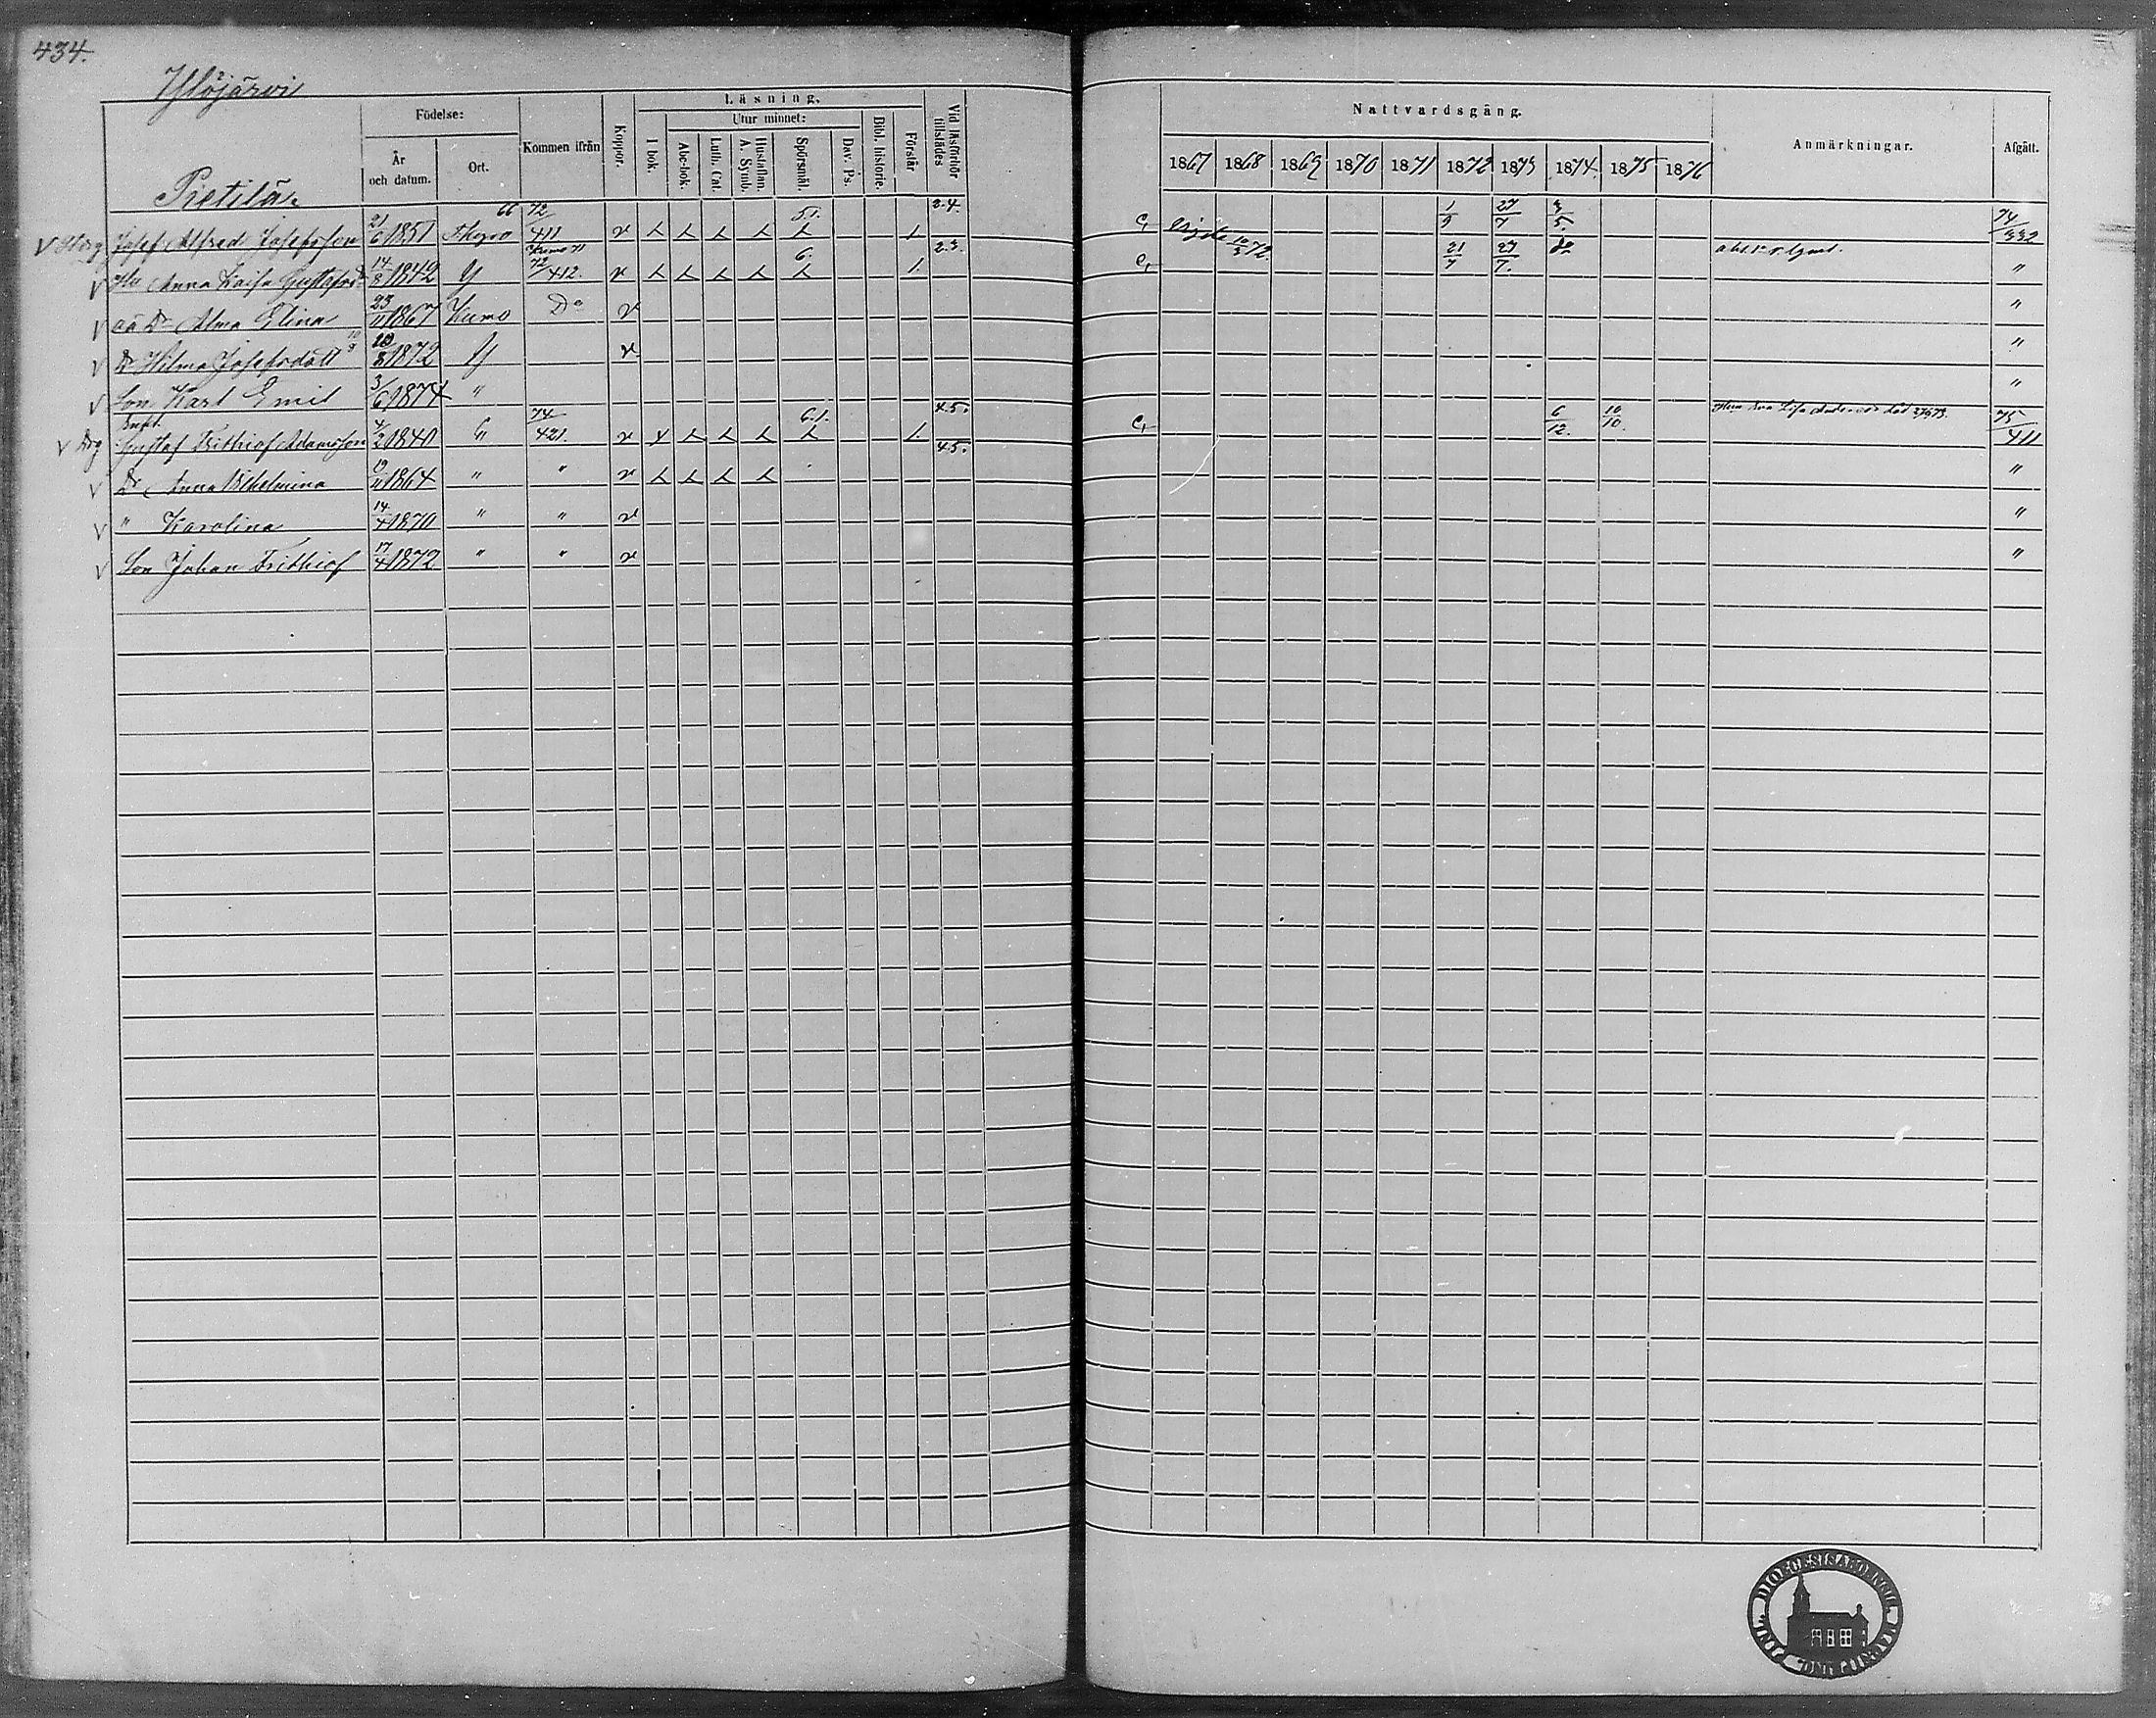 434.
Ylöjärvi
Födelse:
År och datum.
Ort.
Kommen ifrån
Koppor.
Läsning.
I bok.
Utur minnet:
Abc-bok.
Luth. Cat.
Hustaflan. A. Symb.
Spörsmål.
Dav. Ps.
Bibl. historie.
Förstår
Vid läsförhör tillstädes
Nattvardsgång.
1867 1868 1869 1870 1871 1872 1873 1874 1875 1876
Anmärkningar.
Afgått.
Pietilä.
Josef Alfred Josefsson 21/6 1851 66 72/411 5.1. 1 2.4. 1/9 27/7 3/5. 74/332
Anna Kaisa 14/8 1842 Y Kumo 71 72/412. 6. 1. 2.3. 10/3 72. 21/7 27/7. "
Dr Alma Elina 23/11 1867 Kumo Do "
Dr Hilma Josefsdott 10/8 1872 Y "
Son Karl Emil 3/6 1874 " "
Gustaf Frithiof Adamsson 4/2 1840 74/421. 6.1. 1. 4.5. 6/12. 10/10. 75/411
Dr Anna Vilhelmina 19/11 1864 " " 4.5. "
" Karolina 14/4 1870 " " "
Son Johan Frithiof 17/4 1872 " " "